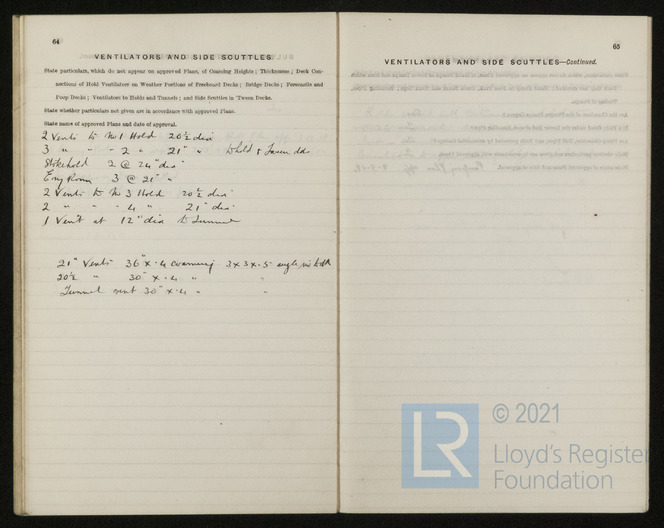 64
VENTILATORS AND SIDE SCUTTLES
State particulars, which do not appear on approved Plans, of Coaming Heights; Thicknesses; Deck Con-
nections of Hold Ventilators on Weather Portions of Freeboard Decks; Bridge Decks; Forecastle and
Poop Decks; Ventilators to Holds and Tunnels; and Side Scuttles in 'Tween Decks.
State whether particulars not given are in accordance with approved Plans.
State name of approved Plans and date of approval.
2 Vents to No 1 Hold 20½ dia
3 " " - 2 " 21" " to hold &
Stokehold 2 @ 24" dia
Eng Room 3 @ 21" "
2 Vents to No 3 Hold 20½ dia
2 " " - 4 " 21" dia
1 Vent at 12" dia to Tunnel
21" Vents 36" x .4 coaming 3 x 3 x .5 angle
20½ " 30" x .4 "
Tunnel vent 30" x .4 "
65
VENTILATORS AND SIDE SCUTTLES—Continued.
LR
© 2021
Lloyd's Register
Foundation